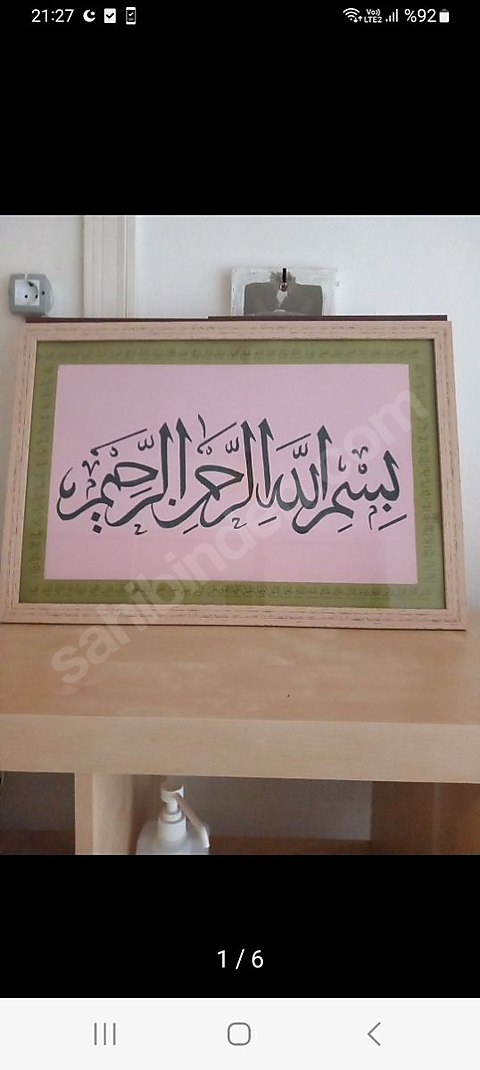 21:27
Vo)) LTE2 %92
بِسْمِ اللّٰهِ الرَّحْمٰنِ الرَّحِيمِ
sahibinden.com
1 / 6